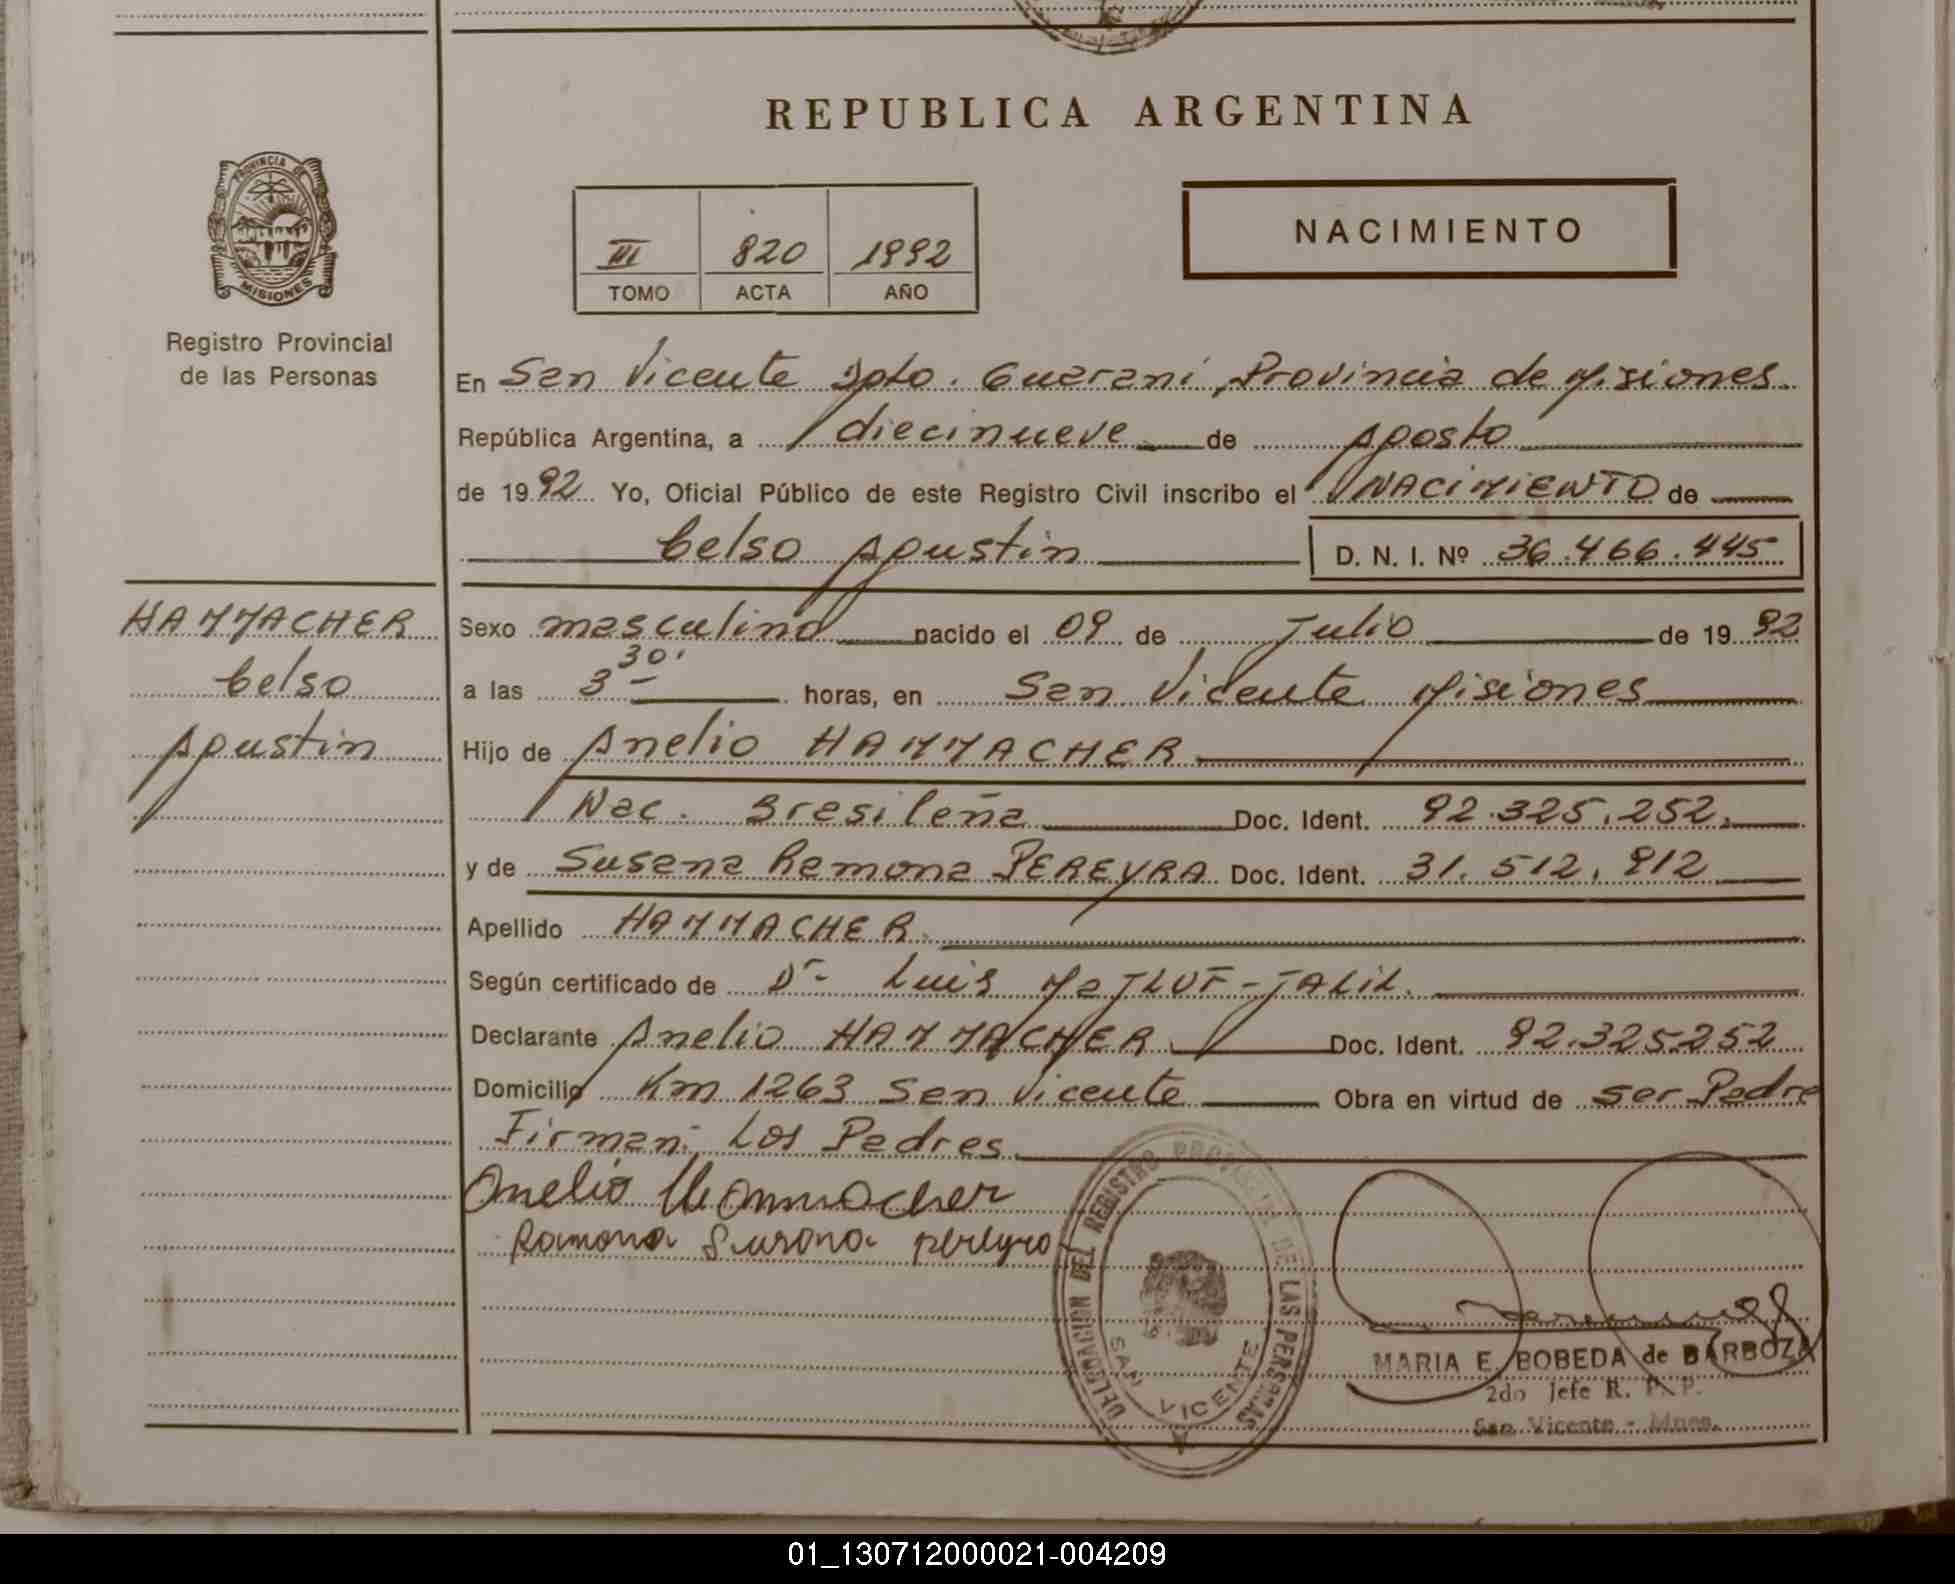 REPUBLICA ARGENTINA
PROVINCIA DE
MISIONES
Registro Provincial
de las Personas
III 820 1992
TOMO ACTA AÑO
NACIMIENTO
En San Vicente Dpto. Guarani, Provincia de Misiones.
República Argentina, a diecinueve de Agosto
de 1992 Yo, Oficial Público de este Registro Civil inscribo el NACIMIENTO de
Celso Agustin D. N. I. Nº 36.466.445
HAMMACHER
Celso
Agustin
Sexo masculino nacido el 09 de Julio de 1992
a las 3 30' horas, en San Vicente Misiones
Hijo de Anelio HAMMACHER
Nac. Brasileña Doc. Ident. 92.325.252.
y de Susana Ramona PEREYRA Doc. Ident. 31.512.912
Apellido HAMMACHER.
Según certificado de Dr- Luis MaJLUF-JALIL.
Declarante Anelio HAMMACHER Doc. Ident. 92.325.252
Domicilio Km 1263 San Vicente Obra en virtud de ser Padre
Firman: Los Padres
Anelio Hammacher
Ramona Susana pereyra
DELEGACION DEL REGISTRO PROVINCIAL DE LAS PERSONAS
SAN VICENTE
MARIA E. BOBEDA de BARBOZA
2do Jefe R. P. P.
San Vicente - Mnes.
01_130712000021-004209